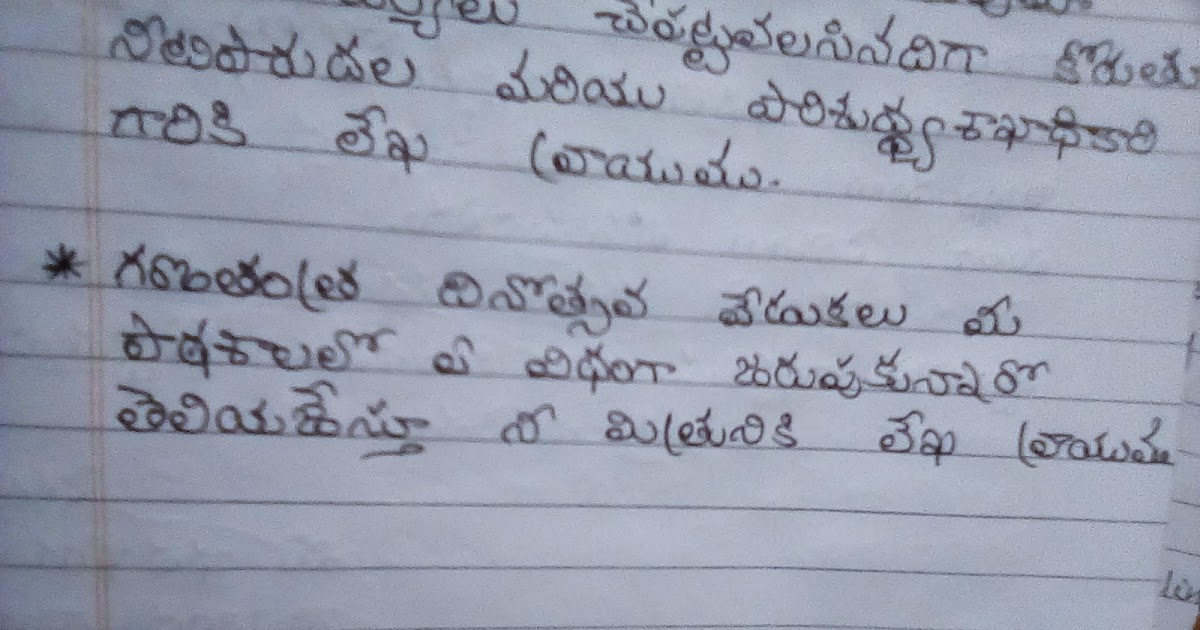 చేపట్టవలసినదిగా కోరుతూ
నీటిపారుదల మరియు పారిశుద్ధ్య శాఖాధికారి
గారికి లేఖ వ్రాయుము.
* గణతంత్ర దినోత్సవ వేడుకలు మీ
పాఠశాలలో ఏ విధంగా జరుపుకున్నారో
తెలియజేస్తూ నీ మిత్రునికి లేఖ వ్రాయుము